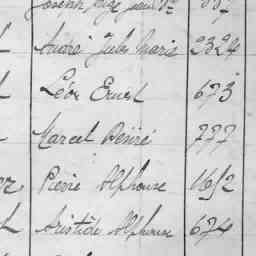 André Jules Marie 2324
Léon Ernest 673
Marcel Désiré 777
Pierre Alphonse 1652
Aristide Alphonse 674